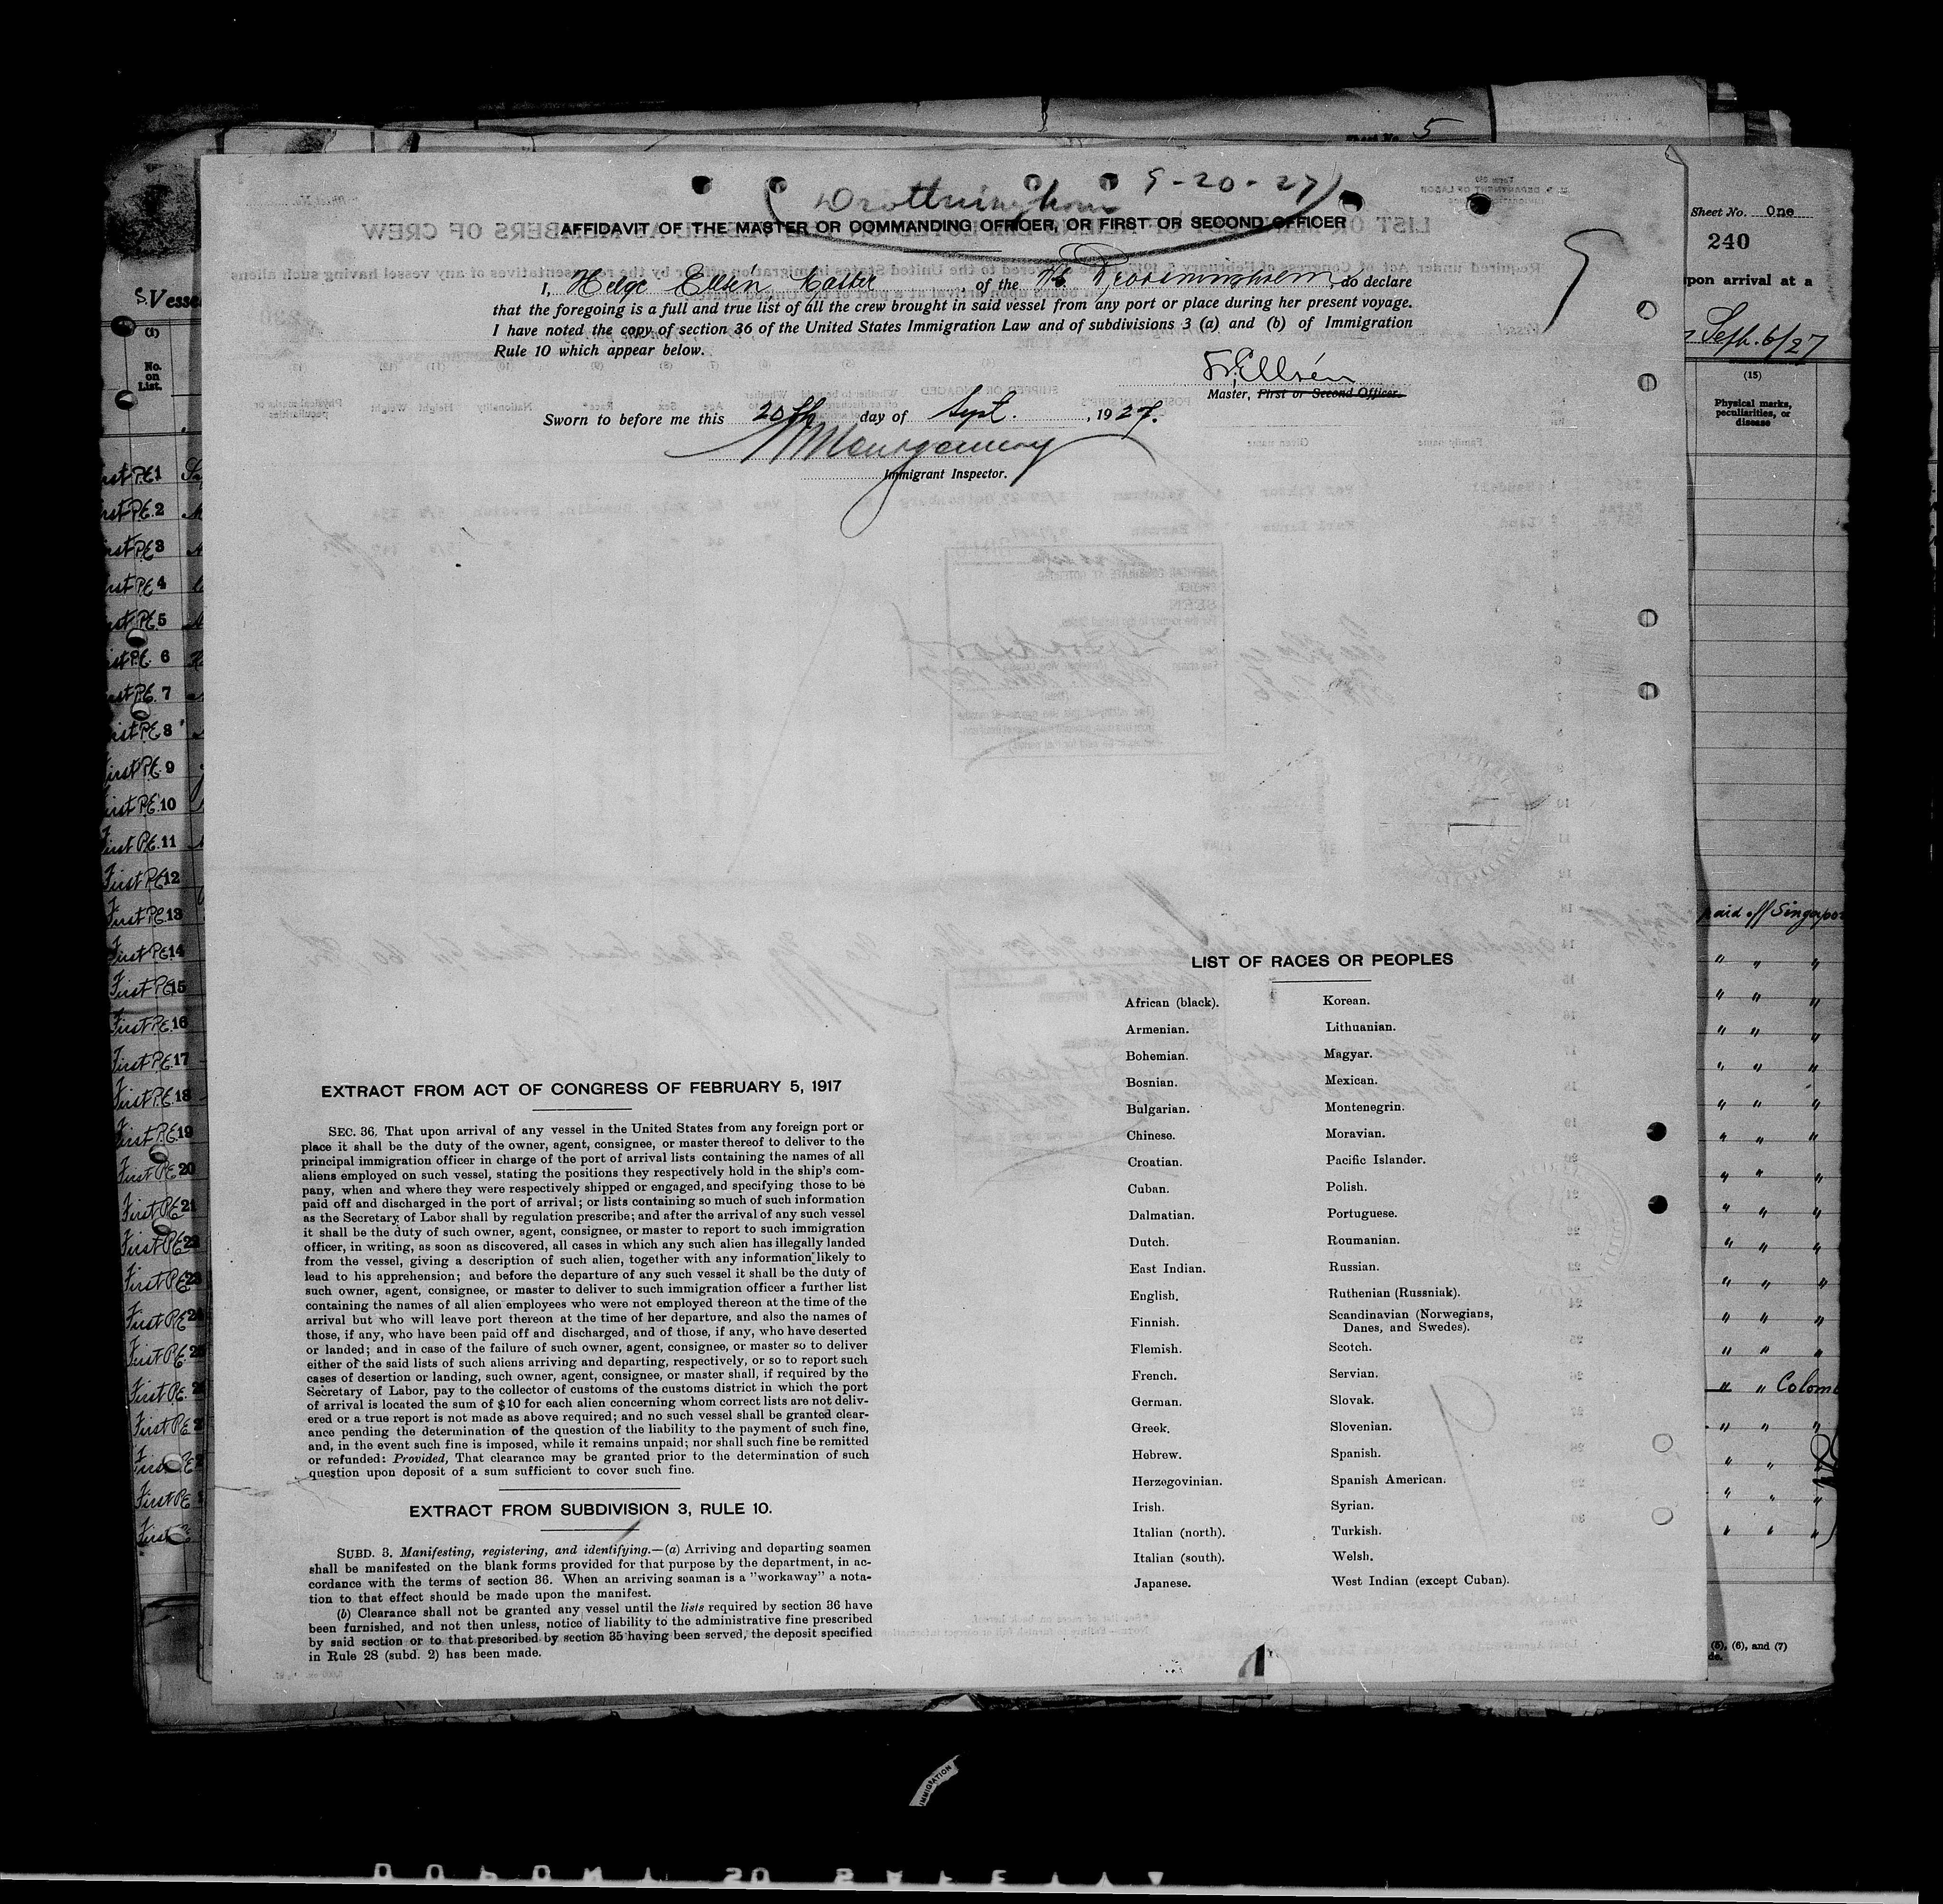 Sheet No. 5
Drottningholm 9-20-27
AFFIDAVIT OF THE MASTER OR COMMANDING OFFICER, OR FIRST OR SECOND OFFICER
I, Helge Ellsén Master, of the Drottningholm, do declare
that the foregoing is a full and true list of all the crew brought in said vessel from any port or place during her present voyage.
I have noted the copy of section 36 of the United States Immigration Law and of subdivisions 3 (a) and (b) of Immigration
Rule 10 which appear below.
Ellsén
Master, First or Second Officer.
Sworn to before me this 20th day of Sept., 1927.
Montgomery
Immigrant Inspector.
LIST OF RACES OR PEOPLES
African (black).
Armenian.
Bohemian.
Bosnian.
Bulgarian.
Chinese.
Croatian.
Cuban.
Dalmatian.
Dutch.
East Indian.
English.
Finnish.
Flemish.
French.
German.
Greek.
Hebrew.
Herzegovinian.
Irish.
Italian (north).
Italian (south).
Japanese.
Korean.
Lithuanian.
Magyar.
Mexican.
Montenegrin.
Moravian.
Pacific Islander.
Polish.
Portuguese.
Roumanian.
Russian.
Ruthenian (Russniak).
Scandinavian (Norwegians,
Danes, and Swedes).
Scotch.
Servian.
Slovak.
Slovenian.
Spanish.
Spanish American.
Syrian.
Turkish.
Welsh.
West Indian (except Cuban).
EXTRACT FROM ACT OF CONGRESS OF FEBRUARY 5, 1917
SEC. 36. That upon arrival of any vessel in the United States from any foreign port or
place it shall be the duty of the owner, agent, consignee, or master thereof to deliver to the
principal immigration officer in charge of the port of arrival lists containing the names of all
aliens employed on such vessel, stating the positions they respectively hold in the ship's com-
pany, when and where they were respectively shipped or engaged, and specifying those to be
paid off and discharged in the port of arrival; or lists containing so much of such information
as the Secretary of Labor shall by regulation prescribe; and after the arrival of any such vessel
it shall be the duty of such owner, agent, consignee, or master to report to such immigration
officer, in writing, as soon as discovered, all cases in which any such alien has illegally landed
from the vessel, giving a description of such alien, together with any information likely to
lead to his apprehension; and before the departure of any such vessel it shall be the duty of
such owner, agent, consignee, or master to deliver to such immigration officer a further list
containing the names of all alien employees who were not employed thereon at the time of the
arrival but who will leave port thereon at the time of her departure, and also the names of
those, if any, who have been paid off and discharged, and of those, if any, who have deserted
or landed; and in case of the failure of such owner, agent, consignee, or master so to deliver
either of the said lists of such aliens arriving and departing, respectively, or so to report such
cases of desertion or landing, such owner, agent, consignee, or master shall, if required by the
Secretary of Labor, pay to the collector of customs of the customs district in which the port
of arrival is located the sum of $10 for each alien concerning whom correct lists are not deliv-
ered or a true report is not made as above required; and no such vessel shall be granted clear-
ance pending the determination of the question of the liability to the payment of such fine,
and, in the event such fine is imposed, while it remains unpaid; nor shall such fine be remitted
or refunded: Provided, That clearance may be granted prior to the determination of such
question upon deposit of a sum sufficient to cover such fine.
EXTRACT FROM SUBDIVISION 3, RULE 10.
SUBD. 3. Manifesting, registering, and identifying.—(a) Arriving and departing seamen
shall be manifested on the blank forms provided for that purpose by the department, in ac-
cordance with the terms of section 36. When an arriving seaman is a "workaway" a nota-
tion to that effect should be made upon the manifest.
(b) Clearance shall not be granted any vessel until the lists required by section 36 have
been furnished, and not then unless, notice of liability to the administrative fine prescribed
by said section or to that prescribed by section 35 having been served, the deposit specified
in Rule 28 (subd. 2) has been made.
Sheet No. One
240
upon arrival at a
Sept. 6/27
(15)
Physical marks,
peculiarities, or
disease
paid off Singapor
" " Colom
(5), (6), and (7)
(1)
No.
on
List.
First P.E. 1
First P.E. 2
First P.E. 3
First P.E. 4
First P.E. 5
First P.E. 6
First P.E. 7
First P.E. 8
First P.E. 9
First P.E. 10
First P.E. 11
First P.E. 12
First P.E. 13
First P.E. 14
First P.E. 15
First P.E. 16
First P.E. 17
First P.E. 18
First P.E. 19
First P.E. 20
First P.E. 21
First P.E. 22
First P.E. 23
IMMIGRATION